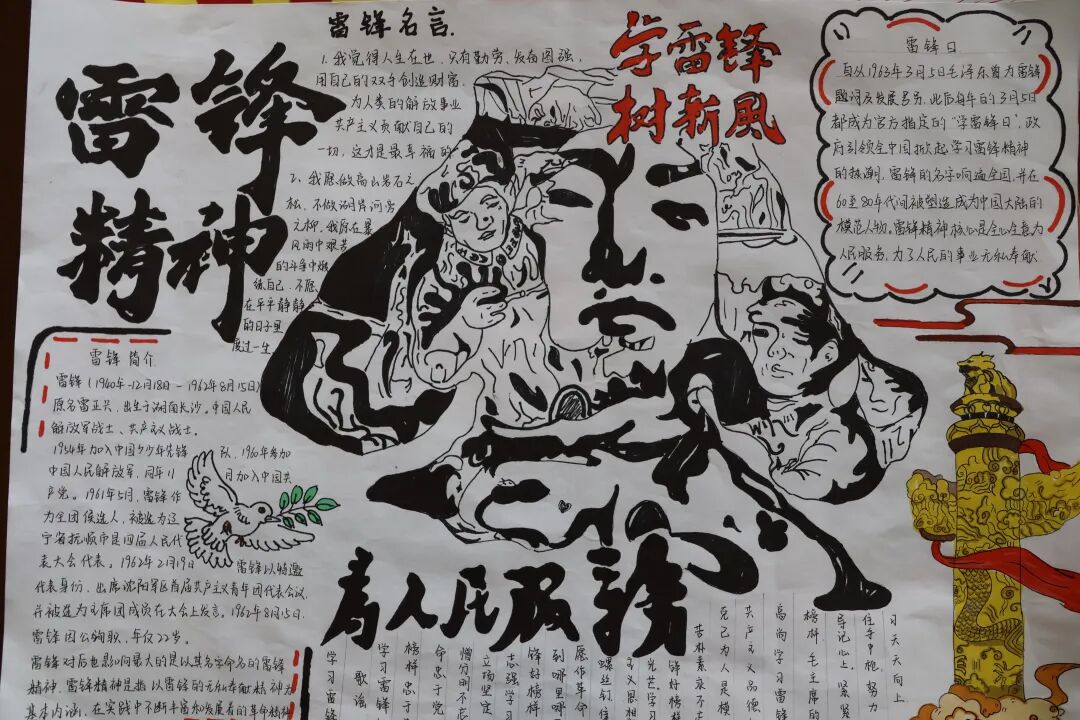 雷锋
精神
雷锋名言.
1.我觉得人生在世,只有勤劳,发奋图强,
用自己的双手创造财富,
为人类的解放事业
共产主义贡献自己的
一切,这才是最幸福的
2.我愿做高山岩石之
松,不做湖岸河旁
之柳,我愿在暴
风雨中艰苦
的斗争中煅
练自己,不愿
在平平静静
的日子里
度过一生.
学雷锋
树新風
雷锋日
自从1963年3月5日毛泽东曾为雷锋
题词及发展号召,此后每年的3月5日
都成为官方指定的"学雷锋日",政
府引领全中国掀起学习雷锋精神
的热潮,雷锋的名字响遍全国,并在
60至80年代间被塑造成为中国大陆的
模范人物。雷锋精神核心是全心全意为
人民服务,为了人民的事业无私奉献.
雷锋简介
雷锋(1940年-12月18日-1962年8月15日)
原名雷正兴,出生于湖南长沙。中国人民
解放军战士、共产主义战士。
1954年加入中国少年先锋队,1960年参加
中国人民解放军,同年11月加入中国共
产党。1961年5月,雷锋作
为全团候选人,被选为辽
宁省抚顺市第四届人民代
表大会代表。1962年2月19日雷锋以特邀
代表身份,出席沈阳军区首届共产主义青年团代表会议,
并被选为主席团成员在大会上发言。1962年8月15日.
雷锋因公殉职,年仅22岁。
雷锋对后世影响最大的是以其名字命名的雷锋
精神,雷锋精神是指以雷锋的无私奉献精神为
基本内涵,在实践中不断丰富和发展着的革命精神
為人民服務
学习雷锋
歌谣
学习雷锋
榜样忠于
命忠于党
憎分明不忘
立场坚定
志强学习
锋好榜样
到哪里
愿作革命
螺丝钉
主义思想
光艺学习
锋好榜样
苦朴素永不
克己为人是模
共产主义品德
高尚学习雷锋
榜样毛主席的
导记心上紧紧
住手中枪努力
习天天向上